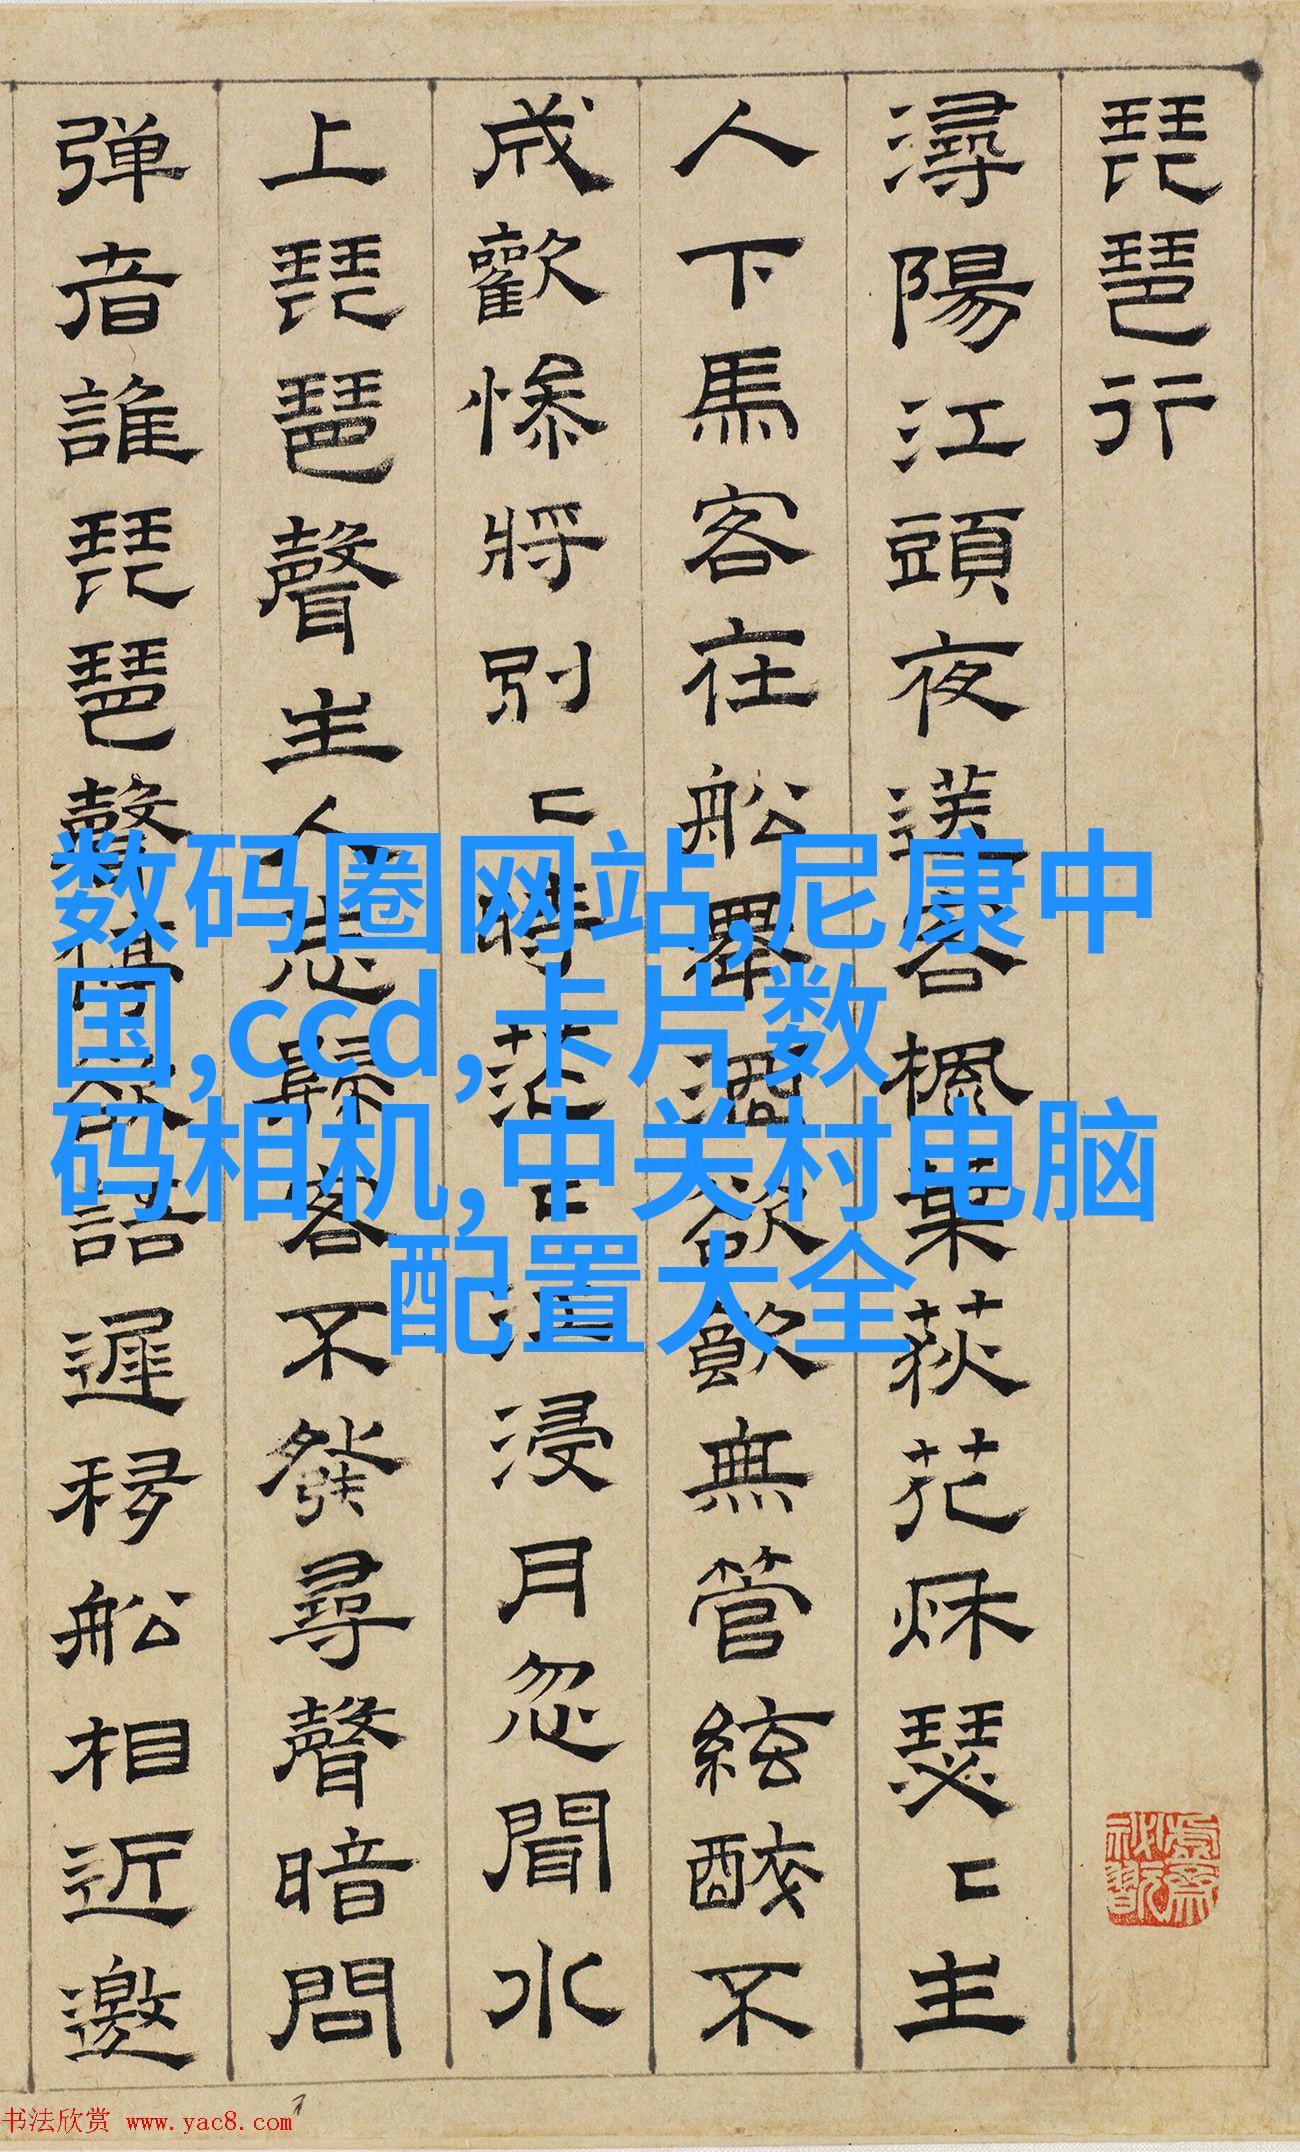 琵琶行
潯陽江頭夜送客楓葉荻花秌瑟〻主
人下馬客在船舉酒欲飲無管絃醉不
成歡慘將別〻時茫〻江浸月忽聞水
上琵琶聲主人忘歸客不發尋聲暗問
弹者誰琵琶聲停欲語遲移船相近邀
数码圈网站,尼康中
国,ccd,卡片数
码相机,中关村电脑
配置大全
书法欣赏 www.yac8.com